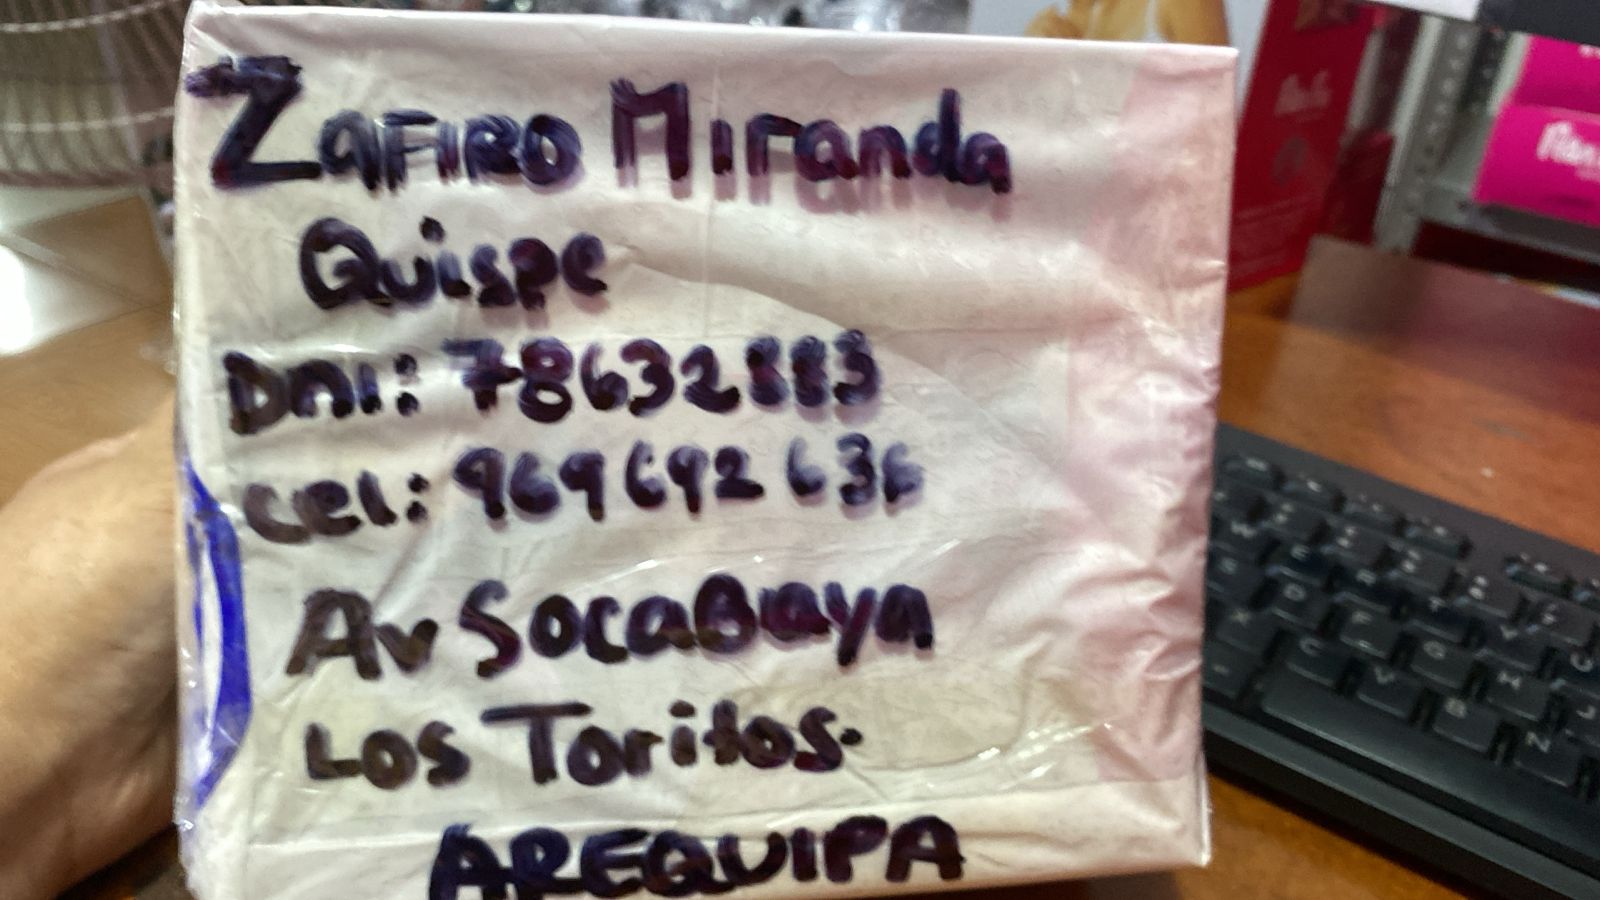 Zafiro Miranda
Quispe
DNI: 78632883
cel: 969692636
Av Socabaya
Los Toritos.
AREQUIPA